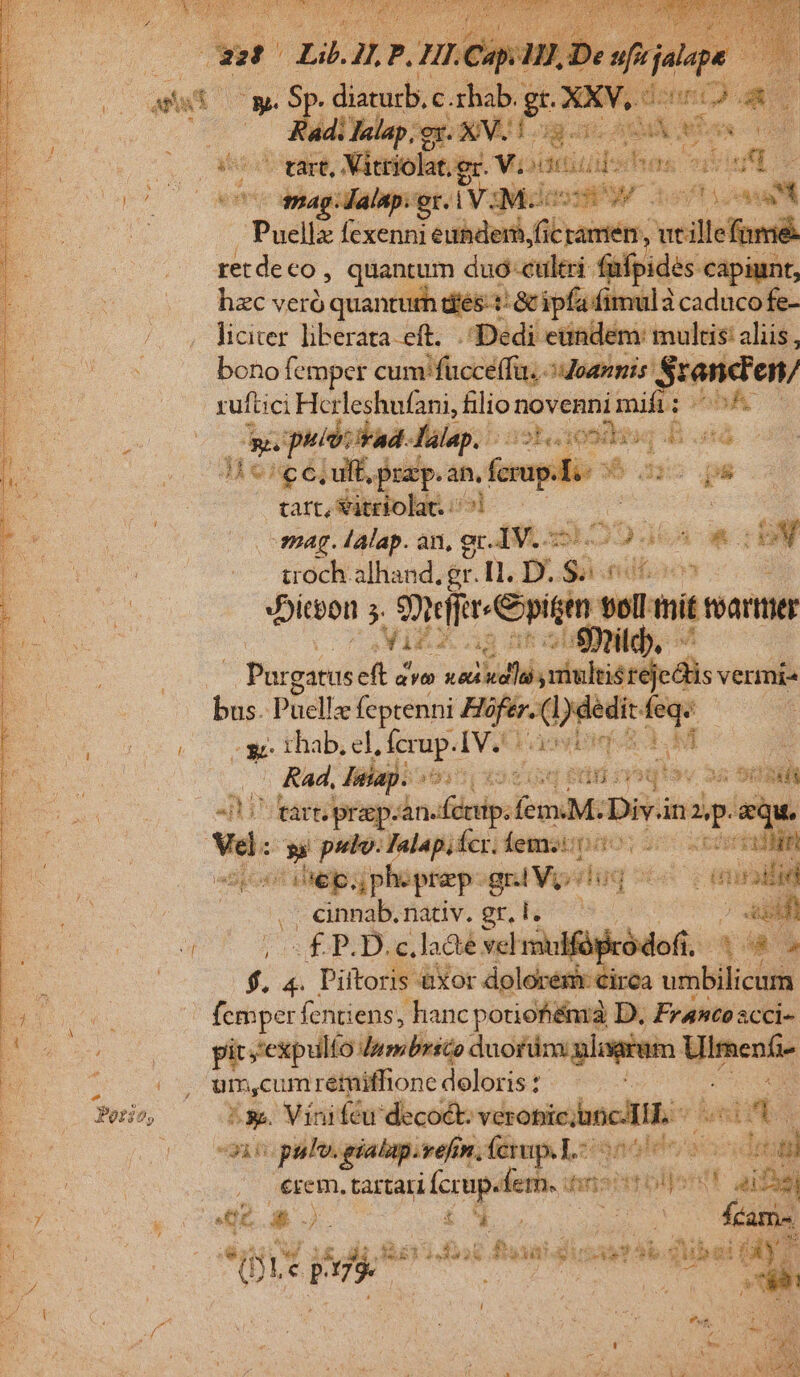 228 Lib. II, P. III. Cap. III, De usu jalapæ
℞. Sp. diaturb. c. rhab. gr. XXV,
Rad. Jalap. gr. XV.
tart. Vitriolat. gr. V.
mag. Jalap. gr. IV. M.
Puellæ ſexenni eundem, ſic tamen, ut ille ſume-
ret de eo, quantum duo cultri ſuſpides capiunt,
hæc verò quantum tres: & ipſa ſimul à caduco fe-
liciter liberata eſt. Dedi eundem multis aliis,
bono ſemper cum ſucceſſu. Joannis Francken/
ruſtici Herleshuſani, filio novenni miſi:
℞. pulv. rad. Jalap.
c c. uſt. præp. an. ſcrup. I.
tart. vitriolat.
mag. Jalap. an. gr. IV.
troch. alhand. gr. II. D. S.
Hievon 3. Meſſer-Spitzen voll mit warmer
Milch.
Purgatus eſt ἄνω καὶ κάτω, multis rejectis vermi-
bus. Puellæ ſeptenni Höfer. (l) dedit ſeq.
℞. rhab. el. ſcrup. IV.
Rad. Jalap.
tart. præp. an. ſcrup. ſem. M. Div. in 2. p. æqu.
Vel: ℞ pulv. Jalap. ſcr. ſem.
c c. ph. præp. gr. IV.
cinnab. nativ. gr. I.
f. P. D. c. lacte vel mulſo pro doſi.
§. 4. Piſtoris uxor dolorem circa umbilicum
ſemper ſentiens, hanc potionem à D. Franco acci-
pit, expulſo lumbrico duorum ulnarum Ulmenſi-
um, cum remiſſione doloris:
Potio, ℞. Vini ſeu decoct. veronic. unc. III.
pulv. gialap. reſin. ſcrup. I.
crem. tartari ſcrup. ſem.
ſcam-
(l) l. c p. 179.